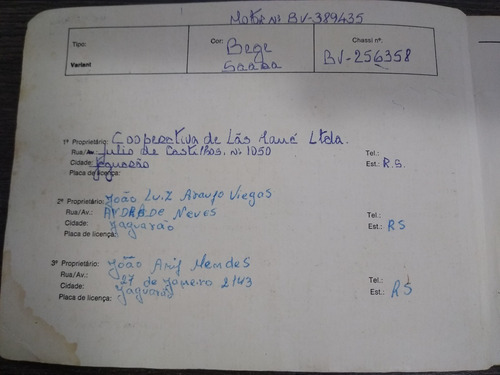 Motor Nº BV-389435
Tipo: Cor: Bege Chassi nº:
Variant Saara BV-256358
1º Proprietário: Cooperativa de Lãs Mauá Ltda.
Rua/Av.: Julio de Castilhos. Nº 1050 Tel.:
Cidade: Jaguarão Est.: R.S.
Placa de licença:
2º Proprietário: João Luiz Araujo Viegas
Rua/Av.: ANDRADE Neves Tel.:
Cidade: Jaguarão Est.: RS
Placa de licença:
3º Proprietário: João Mendes
Rua/Av.: 27 de Janeiro 2143 Tel.:
Cidade: Jaguarão Est.: RS
Placa de licença: